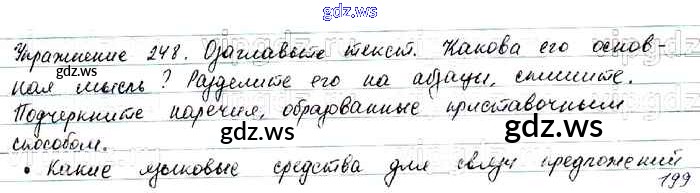 gdz.ws
Упражнение 248. Озаглавьте текст. Какова его основ-
ная мысль? Разделите его на абзацы, спишите.
Подчеркните наречия, образованные приставочным
способом.
gdz.ws gdz.ws
• Какие языковые средства для связи предложений
199